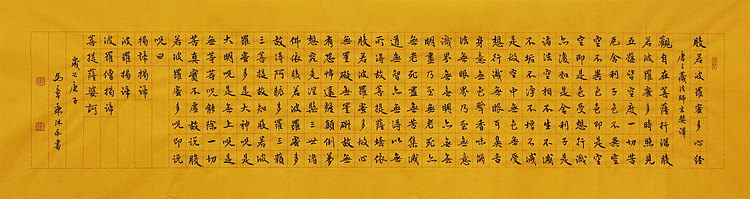 般若波羅蜜多心經
唐三藏法師玄奘譯
觀自在菩薩行深般
若波羅蜜多時照見
五蘊皆空度一切苦
厄舍利子色不異空
空不異色色即是空
空即是色受想行識
亦復如是舍利子是
諸法空相不生不滅
不垢不淨不增不減
是故空中無色無受
想行識無眼耳鼻舌
身意無色聲香味觸
法無眼界乃至無意
識界無無明亦無無
明盡乃至無老死亦
無老死盡無苦集滅
道無智亦無得以無
所得故菩提薩埵依
般若波羅蜜多故心
無罣礙無罣礙故無
有恐怖遠離顛倒夢
想究竟涅槃三世諸
佛依般若波羅蜜多
故得阿耨多羅三藐
三菩提故知般若波
羅蜜多是大神呪是
大明呪是無上呪是
無等等呪能除一切
苦真實不虛故說般
若波羅蜜多呪即說
呪曰
揭諦揭諦
波羅揭諦
波羅僧揭諦
菩提薩婆訶
歲次庚子
沐手書